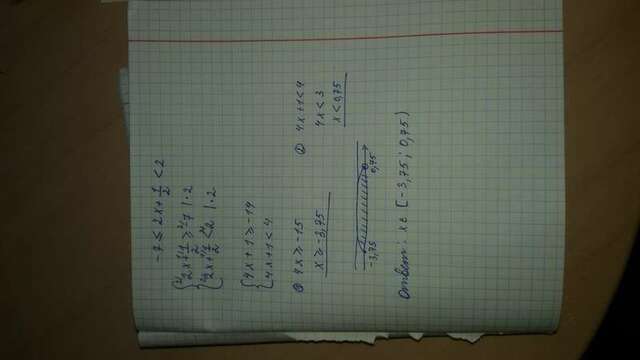 -7 ≤ 2x + 1/2 < 2
{ 2x + 1/2 ≥ -7 | · 2
{ 2x + 1/2 < 2 | · 2
{ 4x + 1 ≥ -14
{ 4x + 1 < 4
① 4x ≥ -15
x ≥ -3,75
② 4x + 1 < 4
4x < 3
x < 0,75
-3,75 0,75
Ответ: x ∈ [-3,75; 0,75)